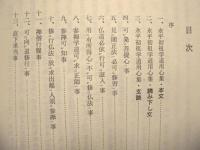 目次
一、永平初祖学道用心集・本文
二、永平初祖学道用心集・読み下し文
三、永平初祖学道用心集・
四、可発菩提心事
五、見聞正法必可修習事
六、仏道必依行可証入事
七、用有所得心不可修仏法事
八、参禅学道可求正師事
九、参禅可知事
十、修行仏法欣求出離人須参禅事
十一、禅僧行履事
十二、可向道修行事
十三、直下承当事
序